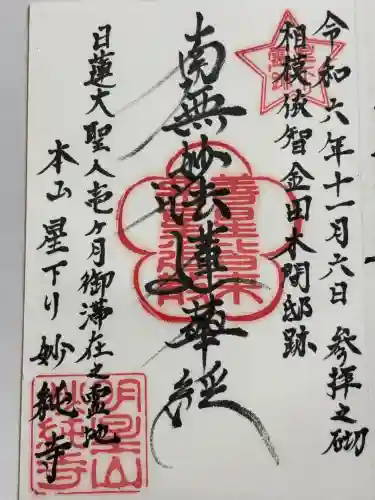 令和六年十一月六日 参拝之砌
相模依智 金田本間邸跡
南無妙法蓮華経
日蓮大聖人壱ヶ月御滞在之霊地
本山 星下り 妙純寺